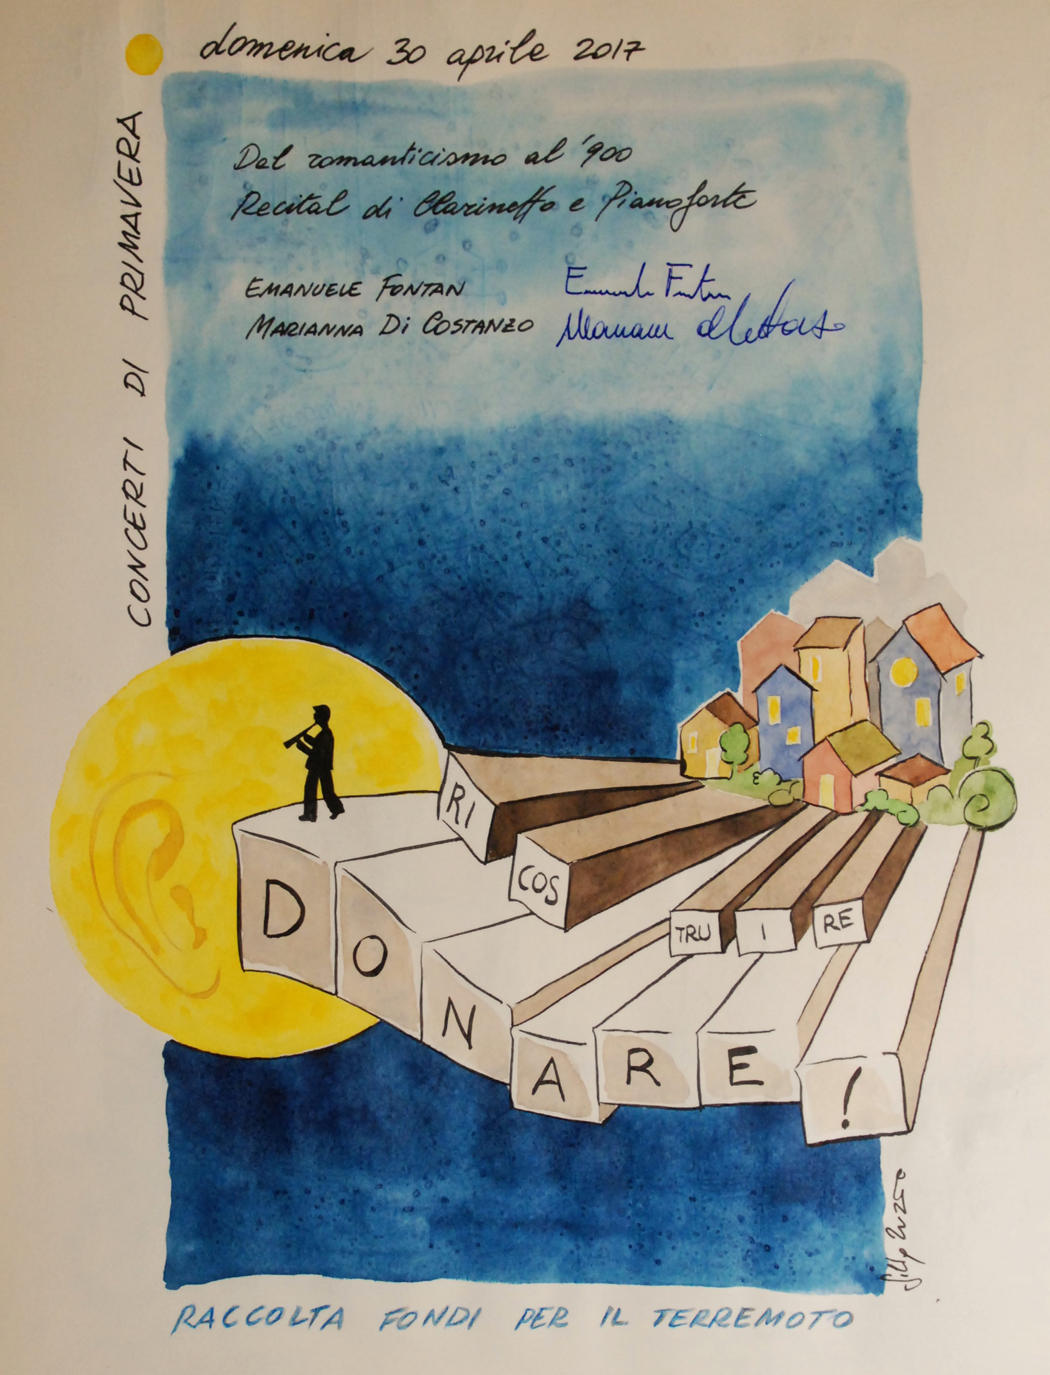 domenica 30 aprile 2017
CONCERTI DI PRIMAVERA
Dal romanticismo al '900
Recital di Clarinetto e Pianoforte
EMANUELE FONTAN
MARIANNA DI COSTANZO
RI
COS
TRU I RE
DONARE!
RACCOLTA FONDI PER IL TERREMOTO